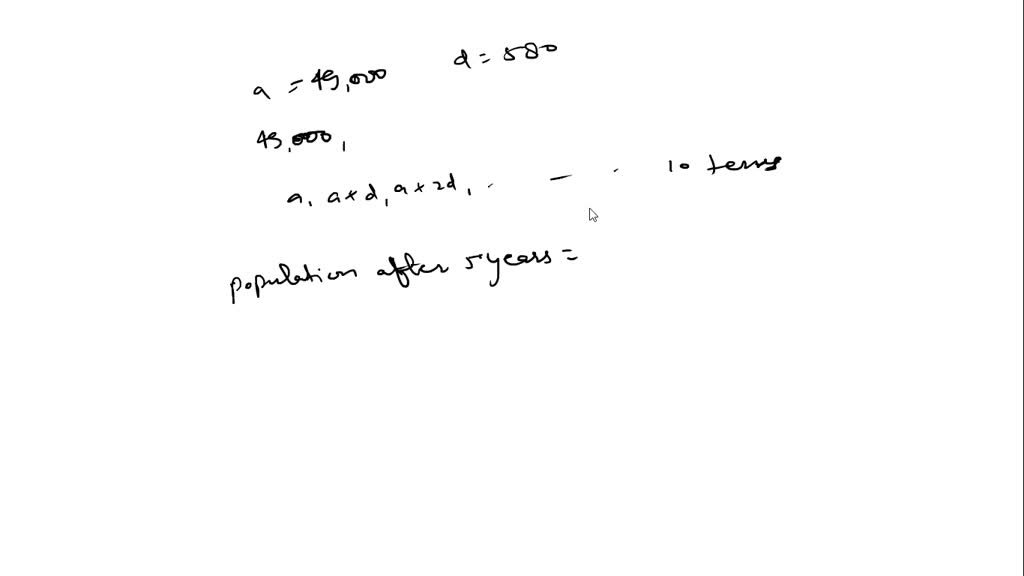 a = 45,000 d = 580
45,000,
a, a+d, a+2d, . — . 10 terms
population after 5 years =